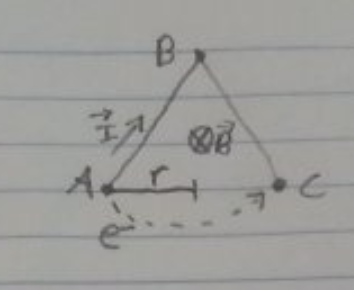 B
I⃗
⊗B⃗
A r C
e⁻